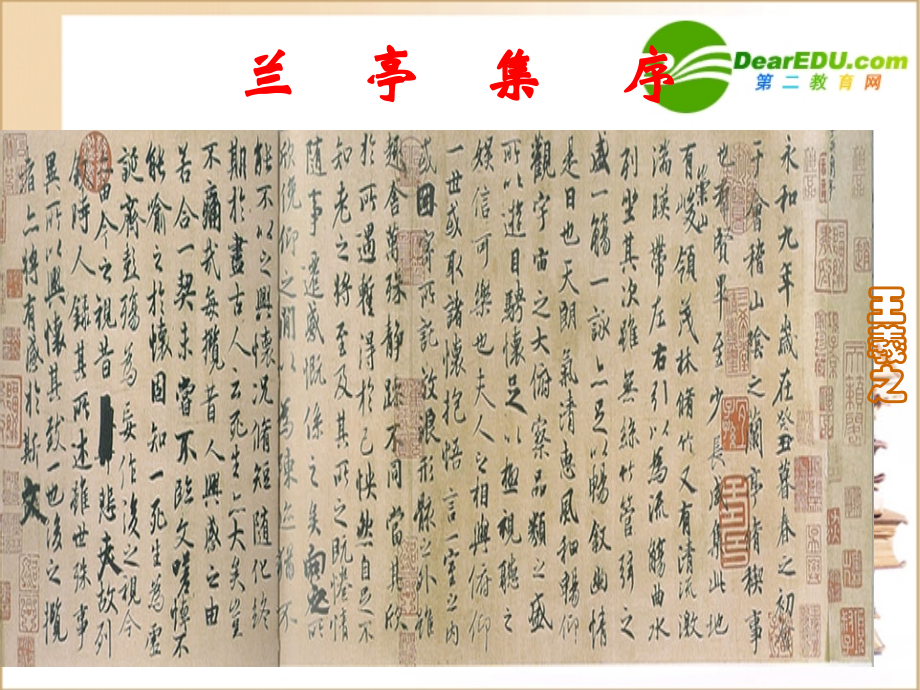 兰亭集序
DearEDU.com
第二教育网
永和九年歲在癸丑暮春之初會
于會稽山陰之蘭亭脩禊事
也群賢畢至少長咸集此地
有崇山峻領茂林脩竹又有清流激
湍暎帶左右引以為流觴曲水
列坐其次雖無絲竹管弦之
盛一觴一詠亦足以暢敘幽情
是日也天朗氣清惠風和暢仰
觀宇宙之大俯察品類之盛
所以遊目騁懷足以極視聽之
娛信可樂也夫人之相與俯仰
一世或取諸懷抱悟言一室之內
或因寄所託放浪形骸之外雖
趣舍萬殊靜躁不同當其欣
於所遇暫得於己怏然自足不
知老之將至及其所之既惓情
隨事遷感慨係之矣向之所
欣俛仰之間以為陳迹猶不
能不以之興懷況脩短隨化終
期於盡古人云死生亦大矣豈
不痛哉每攬昔人興感之由
若合一契未嘗不臨文嗟悼不
能喻之於懷固知一死生為虛
誕齊彭殤為妄作後之視今
亦由今之視昔悲夫故列
敘時人錄其所述雖世殊事
異所以興懷其致一也後之攬
者亦將有感於斯文
王羲之